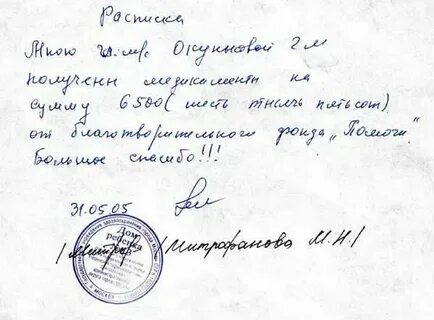 Расписка
Мною гл. м/с Окуньковой Г.М
получены медикаменты на
сумму 6500 (шесть тысяч пятьсот)
от благотворительного фонда „Помочи"
Большое спасибо!!!
31.05.05
/Митрофанова М.Н/
Дом
ребенка
МОСКВА